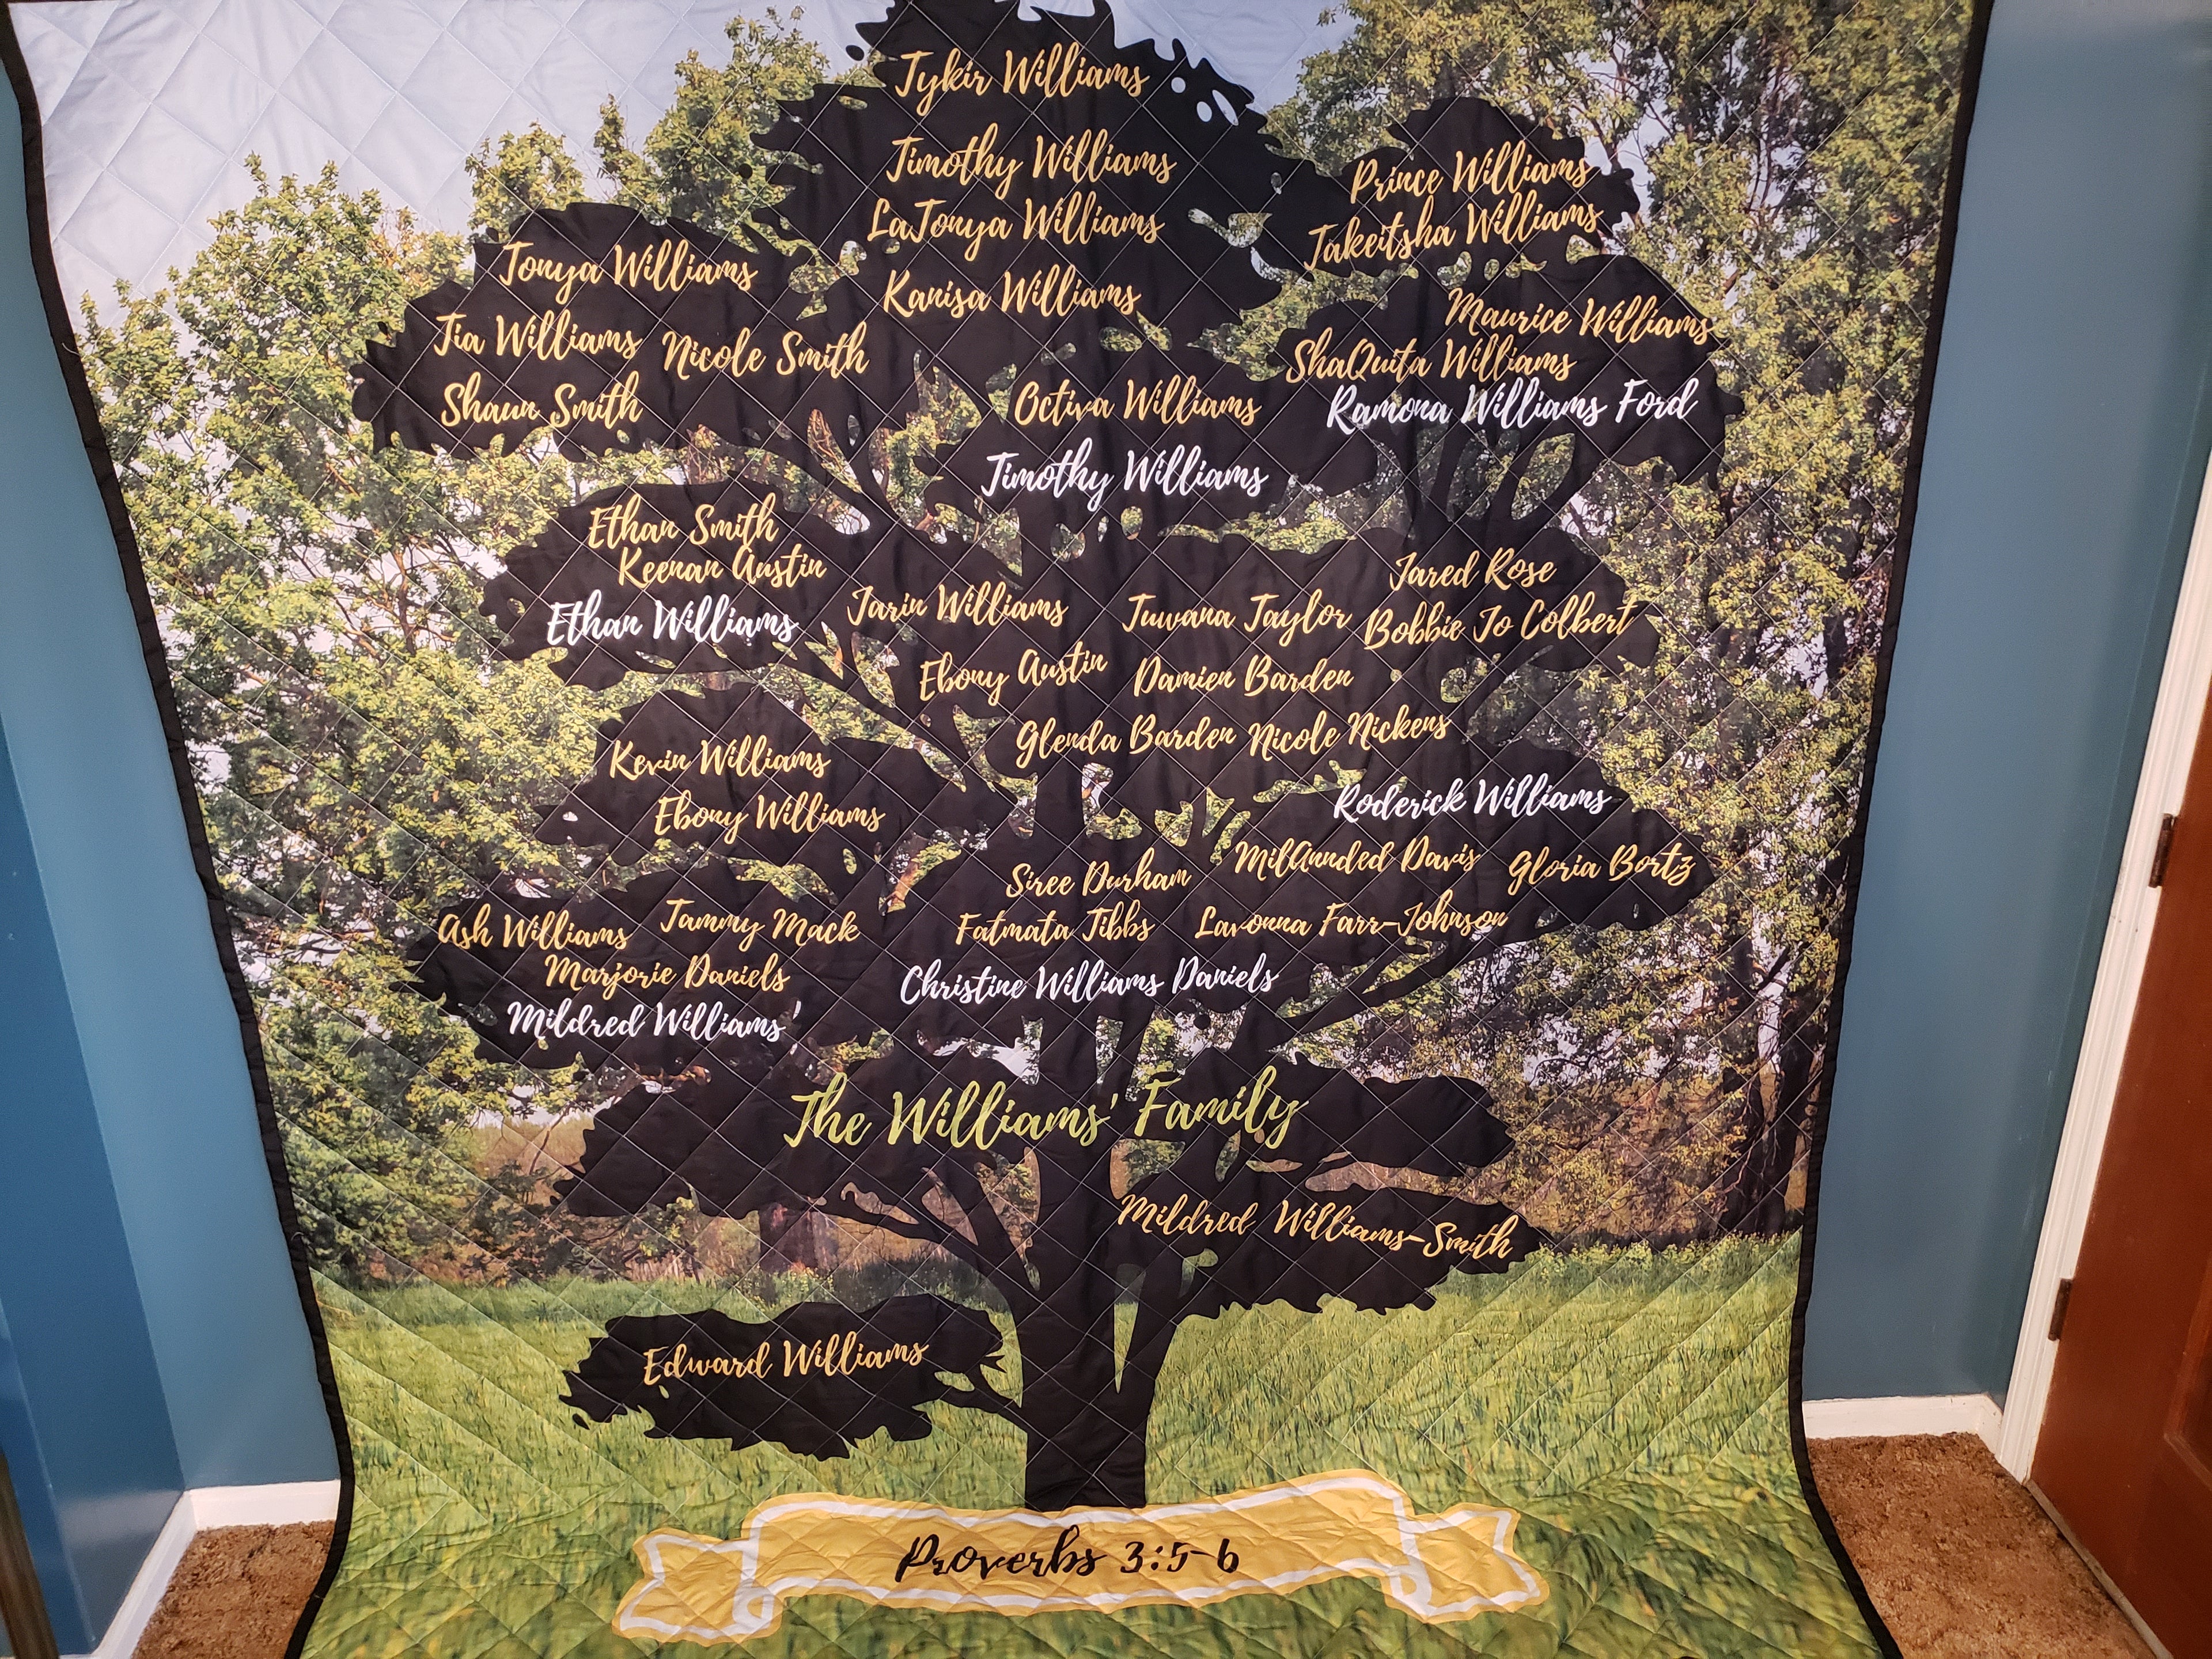 Tykir Williams
Timothy Williams
LaTonya Williams
Kanisa Williams
Prince Williams
Takeitsha Williams
Tonya Williams
Tia Williams Nicole Smith
Shaun Smith
Maurice Williams
ShaQuita Williams
Ramona Williams Ford
Octiva Williams
Timothy Williams
Ethan Smith
Keenan Austin
Ethan Williams
Jarin Williams
Ebony Austin
Jared Rose
Tuwana Taylor Bobbie Jo Colbert
Damien Barden
Glenda Barden Nicole Nickens
Kevin Williams
Ebony Williams
Roderick Williams
MilAnnded Davis Gloria Bortz
Siree Durham
Fatmata Tibbs Lavonna Farr-Johnson
Christine Williams Daniels
Ash Williams Tammy Mack
Marjorie Daniels
Mildred Williams'
The Williams' Family
Mildred Williams-Smith
Edward Williams
Proverbs 3:5-6